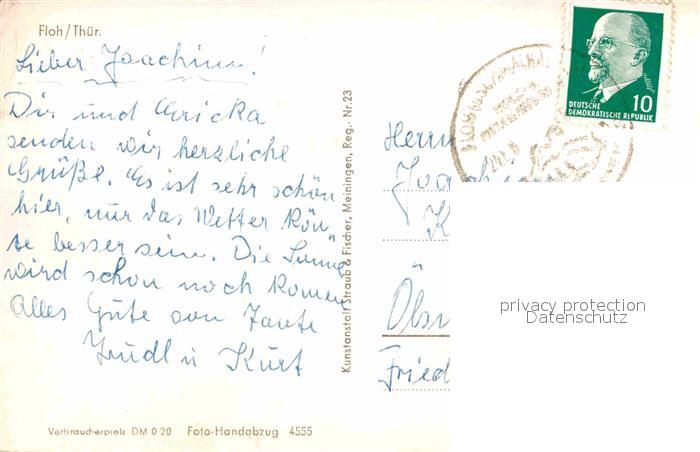 Floh/Thür.
Lieber Joachim!
Dir und Ericka
senden wir herzliche
Grüße. Es ist sehr schön
hier, nur das Wetter kön
te besser sein. Die Sunne
wird schon noch komen
Alles Gute von Tante
Trudl u Kurt
Verbraucherpreis DM 0 20 Foto-Handabzug 4555
Kunstanstalt Straub & Fischer, Meiningen, Reg.-Nr.23
10
DEUTSCHE
DEMOKRATISCHE REPUBLIK
Herrn
Öls
Fried
privacy protection
Datenschutz